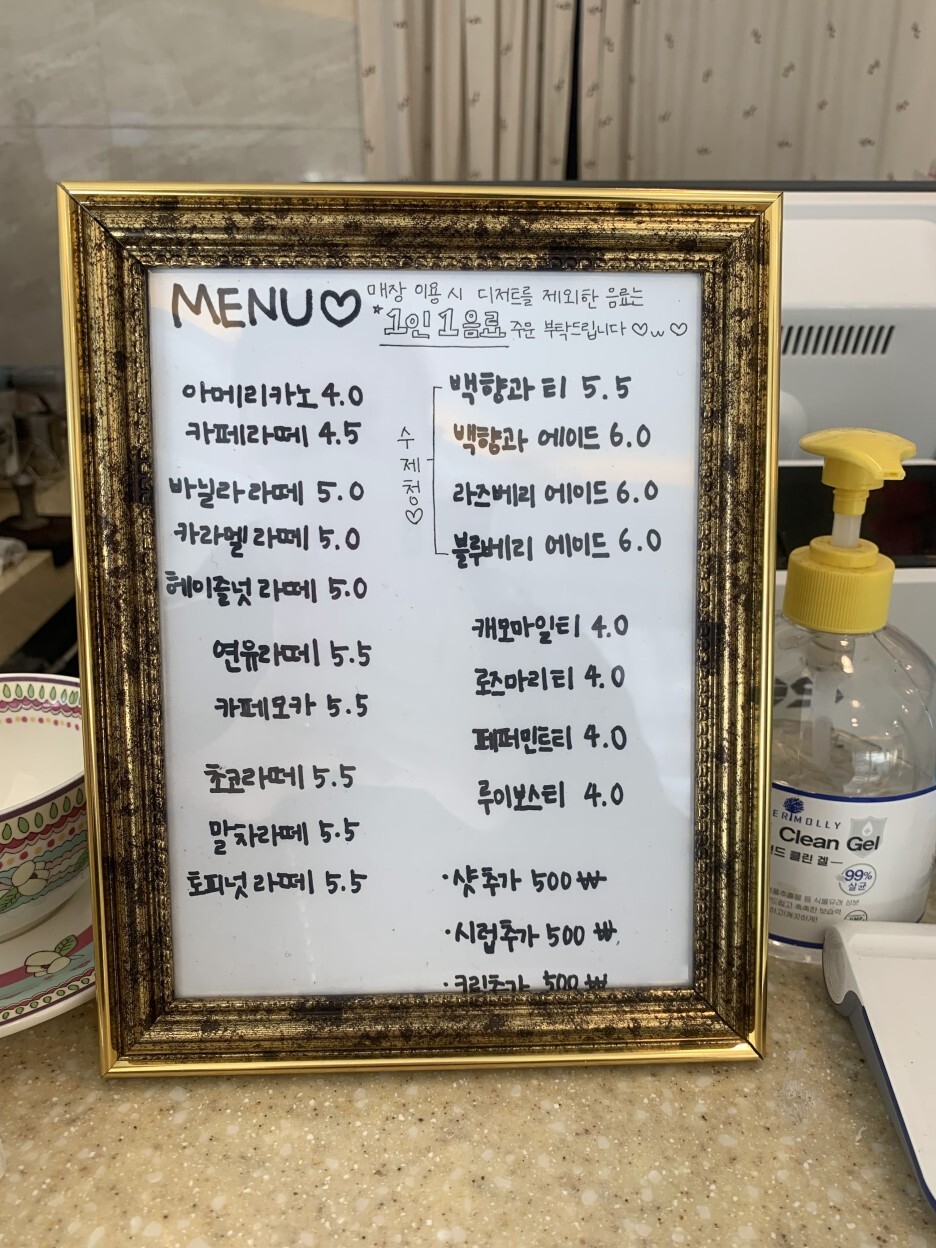 MENU♡
매장 이용 시 디저트를 제외한 음료는
*1인 1음료 주문 부탁드립니다 ♡w♡
아메리카노 4.0
카페라떼 4.5
바닐라라떼 5.0
카라멜라떼 5.0
헤이즐넛라떼 5.0
연유라떼 5.5
카페모카 5.5
초코라떼 5.5
말차라떼 5.5
토피넛라떼 5.5
수제청♡
백향과 티 5.5
백향과 에이드 6.0
라즈베리 에이드 6.0
블루베리 에이드 6.0
캐모마일티 4.0
로즈마리티 4.0
페퍼민트티 4.0
루이보스티 4.0
·샷추가 500₩
·시럽추가 500₩
·크림추가 500₩
ERMOLLY
Clean Gel
드 클린 겔
99%
살균